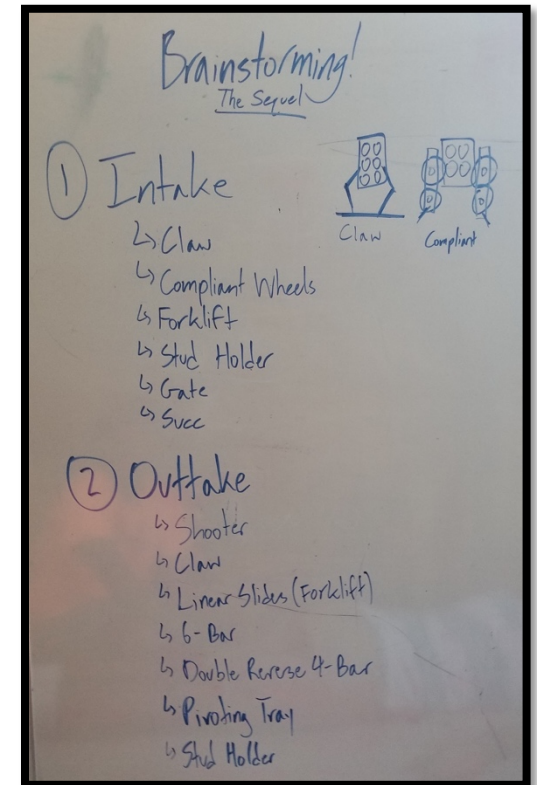 Brainstorming!
The Sequel
① Intake
↳ Claw
↳ Compliant Wheels
↳ Forklift
↳ Stud Holder
↳ Gate
↳ Succ
Claw
Compliant
② Outtake
↳ Shooter
↳ Claw
↳ Linear Slides (Forklift)
↳ 6-Bar
↳ Double Reverse 4-Bar
↳ Pivoting Tray
↳ Stud Holder